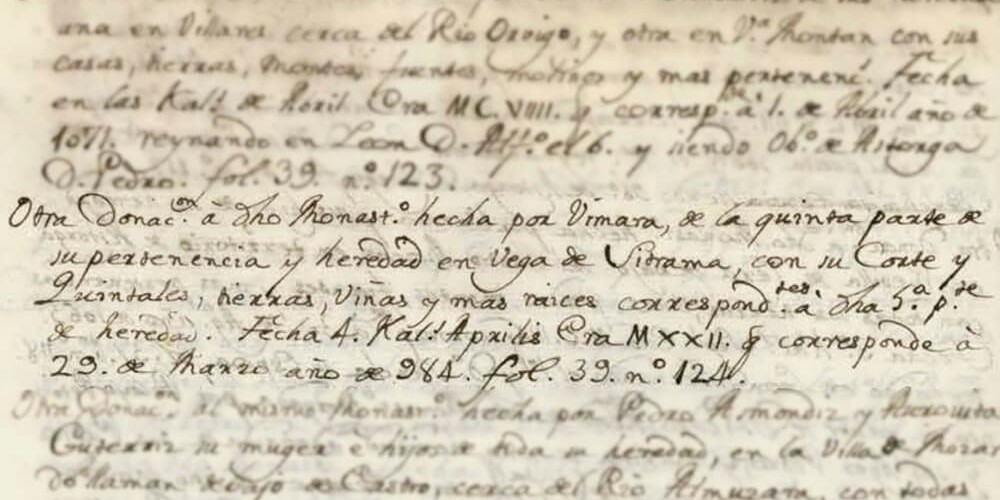 una en Villares cerca del Rio Orvigo, y otra en V.ª Montan con sus
casas, tierras, Montes, fuentes, molinos y mas pertenenc.ˢ Fecha
en las Kal.ˢ de Abril Era MC.VIIII. q̃ corresp.ᵈᵉ à 1. de Abril año de
1071. reynando en Leon D. Alf.º el 6. y siendo Ob.º de Astorga
D. Pedro. fol. 39. n.º 123.
Otra Donac.ᵒⁿ à dho Monast.º hecha por Vimara, de la quinta parte de
su pertenencia y heredad en Vega de Vitrama, con su Corte y
Quintales, tierras, Viñas y mas raices correspond.ᵗᵉˢ à dha 5.ª p.ᵗᵉ
de heredad. Fecha 4. Kal.ˢ Aprilis Era MXXII. q̃ corresponde à
29. de Marzo año de 984. fol. 39. n.º 124.
Otra Donac.ⁿ al mismo Monast.º hecha por Pedro y
Guterriz su muger è hijos de toda su heredad, en la Villa de
do llaman de Castro, cerca del Rio Almuzara con todas